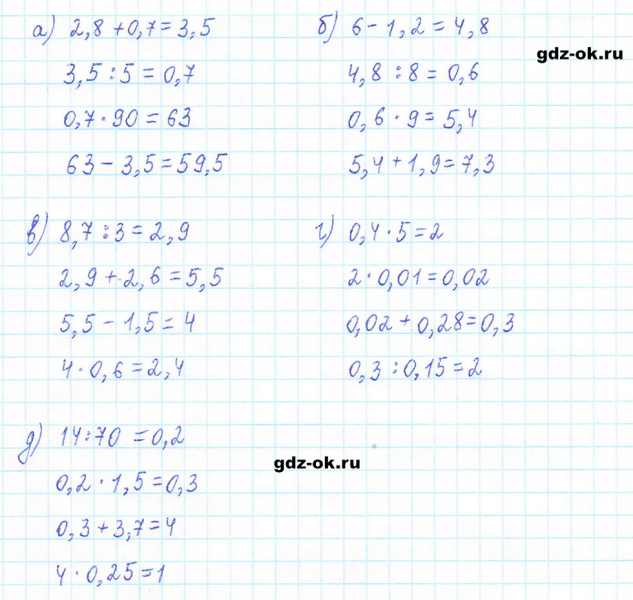 а) 2,8 + 0,7 = 3,5
3,5 : 5 = 0,7
0,7 · 90 = 63
63 - 3,5 = 59,5
б) 6 - 1,2 = 4,8
gdz-ok.ru
4,8 : 8 = 0,6
0,6 · 9 = 5,4
5,4 + 1,9 = 7,3
в) 8,7 : 3 = 2,9
2,9 + 2,6 = 5,5
5,5 - 1,5 = 4
4 · 0,6 = 2,4
г) 0,4 · 5 = 2
2 · 0,01 = 0,02
0,02 + 0,28 = 0,3
0,3 : 0,15 = 2
д) 14 : 70 = 0,2
0,2 · 1,5 = 0,3
0,3 + 3,7 = 4
4 · 0,25 = 1
gdz-ok.ru